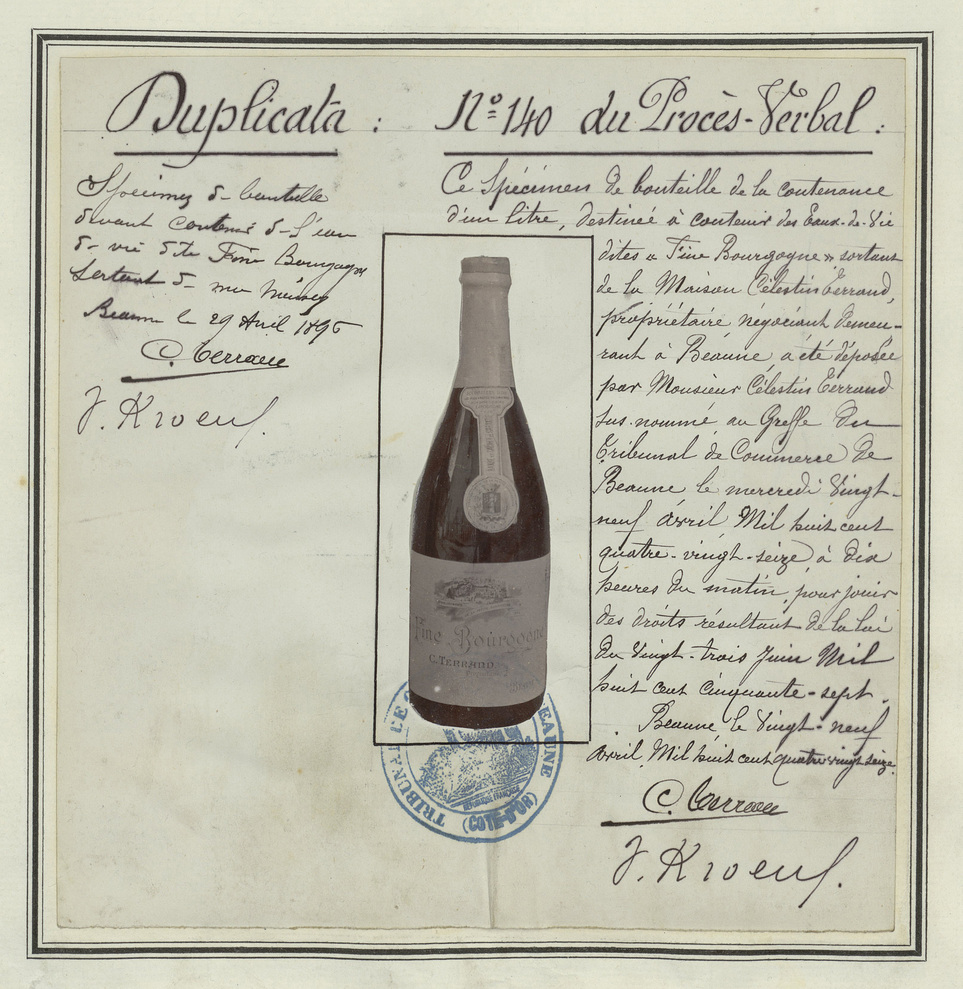 Duplicata :
Spécimen de bouteille
devant contenir de l'eau
de vie dite Fine Bourgogne
sortant de ma maison
Beaune le 29 Avril 1896
C. Terrand
J. Kroeuf.
N° 140 du Procès-Verbal :
Ce Spécimen de bouteille de la contenance
d'un litre, destinée à contenir des Eaux-de-Vie
dites « Fine Bourgogne » sortant
de la Maison Célestin Terrand,
propriétaire négociant demeu-
rant à Beaune, a été déposée
par Monsieur Célestin Terrand
sus-nommé au Greffe du
Tribunal de Commerce de
Beaune le mercredi Vingt-
neuf Avril Mil huit cent
quatre-vingt-seize, à dix
heures du matin, pour jouir
des droits résultant de la loi
du Vingt-trois Juin Mil
huit cent cinquante-sept.
Beaune le Vingt-neuf
Avril, Mil huit cent quatre vingt seize.
C. Terrand
J. Kroeuf.
Fine Bourgogne
C. TERRAND
TRIBUNAL DE BEAUNE
RÉPUBLIQUE FRANÇAISE
(COTE-D'OR)